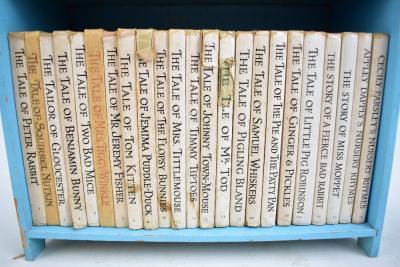 THE TALE OF PETER RABBIT
THE TALE OF SQUIRREL NUTKIN
THE TAILOR OF GLOUCESTER
THE TALE OF BENJAMIN BUNNY
THE TALE OF TWO BAD MICE
THE TALE OF MRS. TIGGY-WINKLE
THE TALE OF MR. JEREMY FISHER
THE TALE OF TOM KITTEN
THE TALE OF JEMIMA PUDDLE-DUCK
THE TALE OF THE FLOPSY BUNNIES
THE TALE OF MRS. TITTLEMOUSE
THE TALE OF TIMMY TIPTOES
THE TALE OF JOHNNY TOWN-MOUSE
THE TALE OF MR. TOD
THE TALE OF PIGLING BLAND
THE TALE OF SAMUEL WHISKERS
THE TALE OF THE PIE AND THE PATTY PAN
THE TALE OF GINGER & PICKLES
THE TALE OF LITTLE PIG ROBINSON
THE STORY OF A FIERCE BAD RABBIT
THE STORY OF MISS MOPPET
APPLEY DAPPLY'S NURSERY RHYMES
CECILY PARSLEY'S NURSERY RHYMES